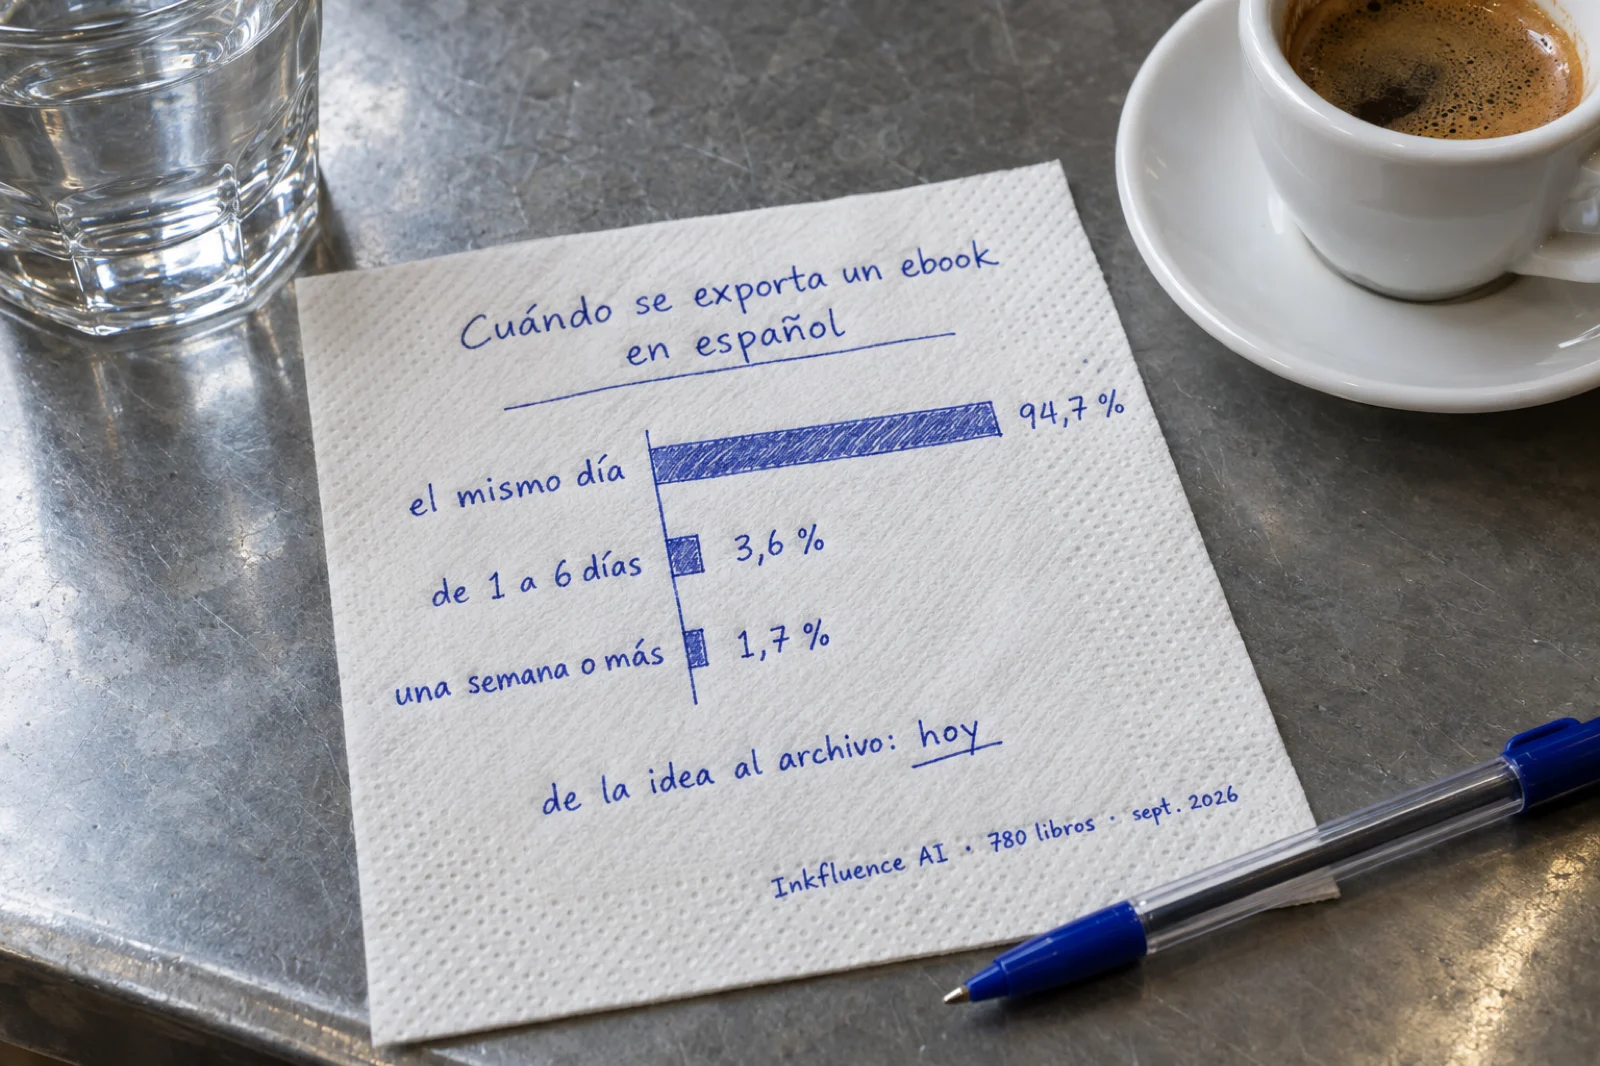 Cuándo se exporta un ebook
en español
el mismo día 94,7 %
de 1 a 6 días 3,6 %
una semana o más 1,7 %
de la idea al archivo: hoy
Inkfluence AI · 780 libros · sept. 2026